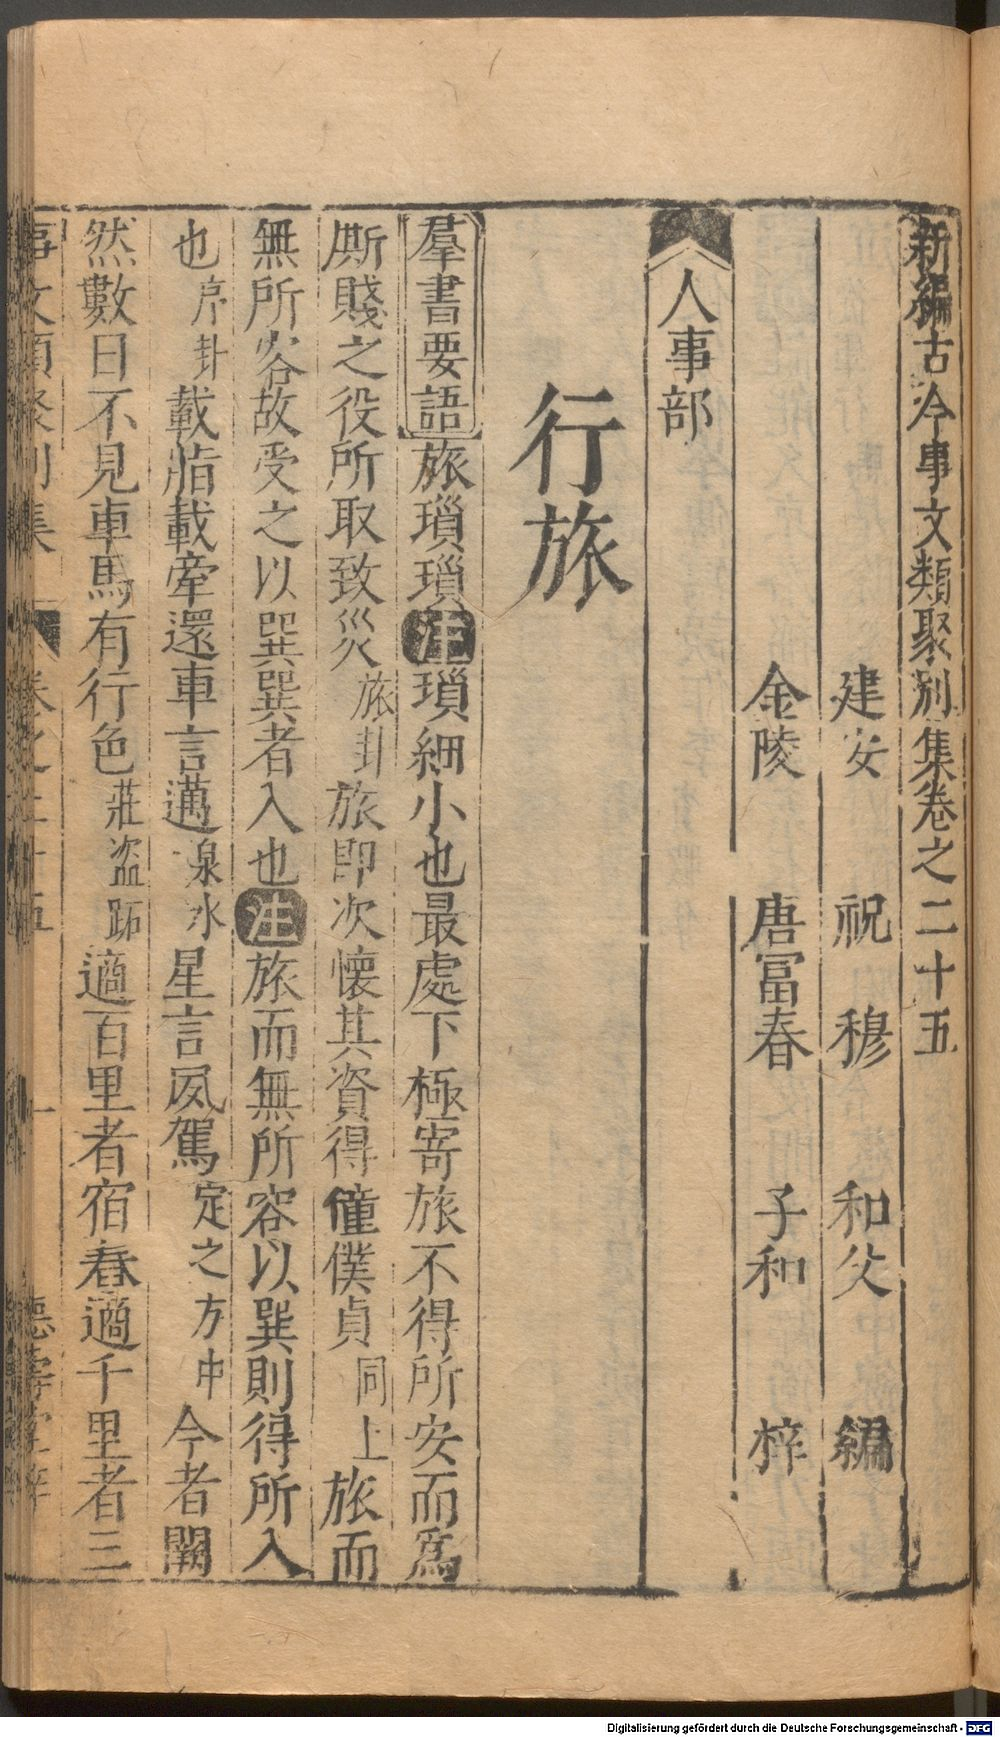 新編古今事文類聚別集卷之二十五
建安 祝穆 和父 編
金陵 唐富春 子和 梓
人事部
行旅
羣書要語旅瑣瑣注瑣細小也最處下極寄旅不得所安而爲
斯賤之役所取致災旅卦旅即次懷其資得僮僕貞同上旅而
無所容故受之以巽巽者入也注旅而無所容以巽則得所入
也序卦載脂載舝還車言邁泉水星言夙駕定之方中今者闕
然數日不見車馬有行色莊盜跖適百里者宿舂適千里者三
Digitalisierung gefördert durch die Deutsche Forschungsgemeinschaft - DFG